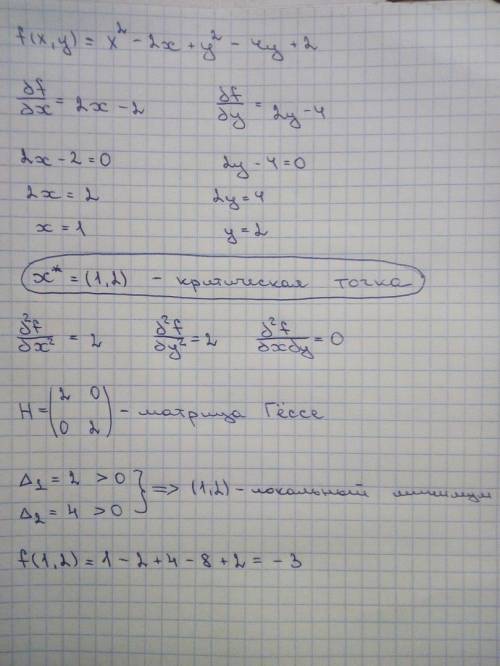 f(x,y) = x² - 2x + y² - 4y + 2
∂f/∂x = 2x - 2    ∂f/∂y = 2y - 4
2x - 2 = 0    2y - 4 = 0
2x = 2    2y = 4
x = 1    y = 2
x* = (1,2) - критическая точка
∂²f/∂x² = 2    ∂²f/∂y² = 2    ∂²f/∂x∂y = 0
H = (2 0; 0 2) - матрица Гёссе
Δ₁ = 2 > 0 } => (1,2) - локальный минимум
Δ₂ = 4 > 0
f(1,2) = 1 - 2 + 4 - 8 + 2 = - 3